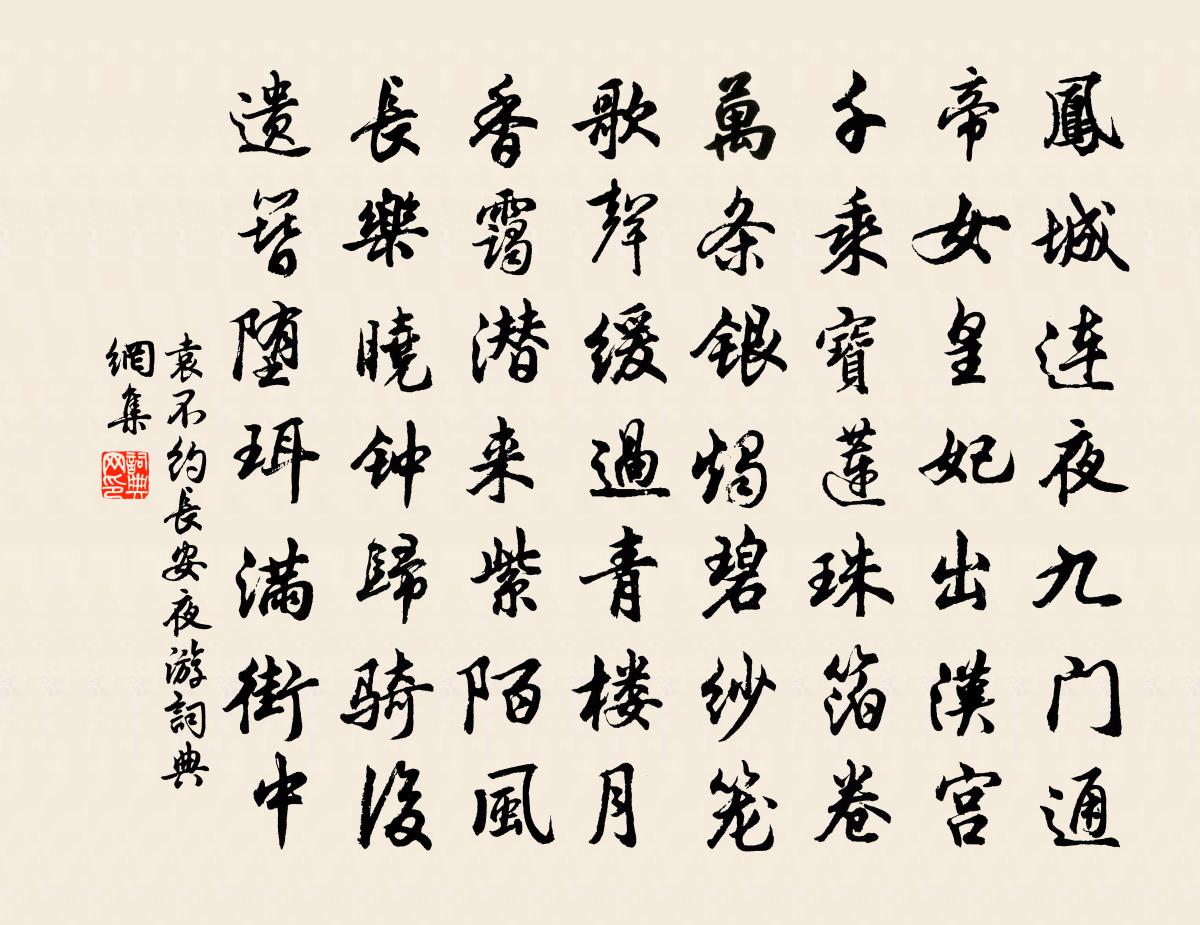 鳳城连夜九门通
帝女皇妃出漢宫
千乘寶蓮珠箔卷
萬条銀燭碧纱笼
歌聲缓過青楼月
香靄潜来紫陌風
長樂曉钟歸骑後
遗簪堕珥满街中
袁不约長安夜游詞典
網集
詞典网印